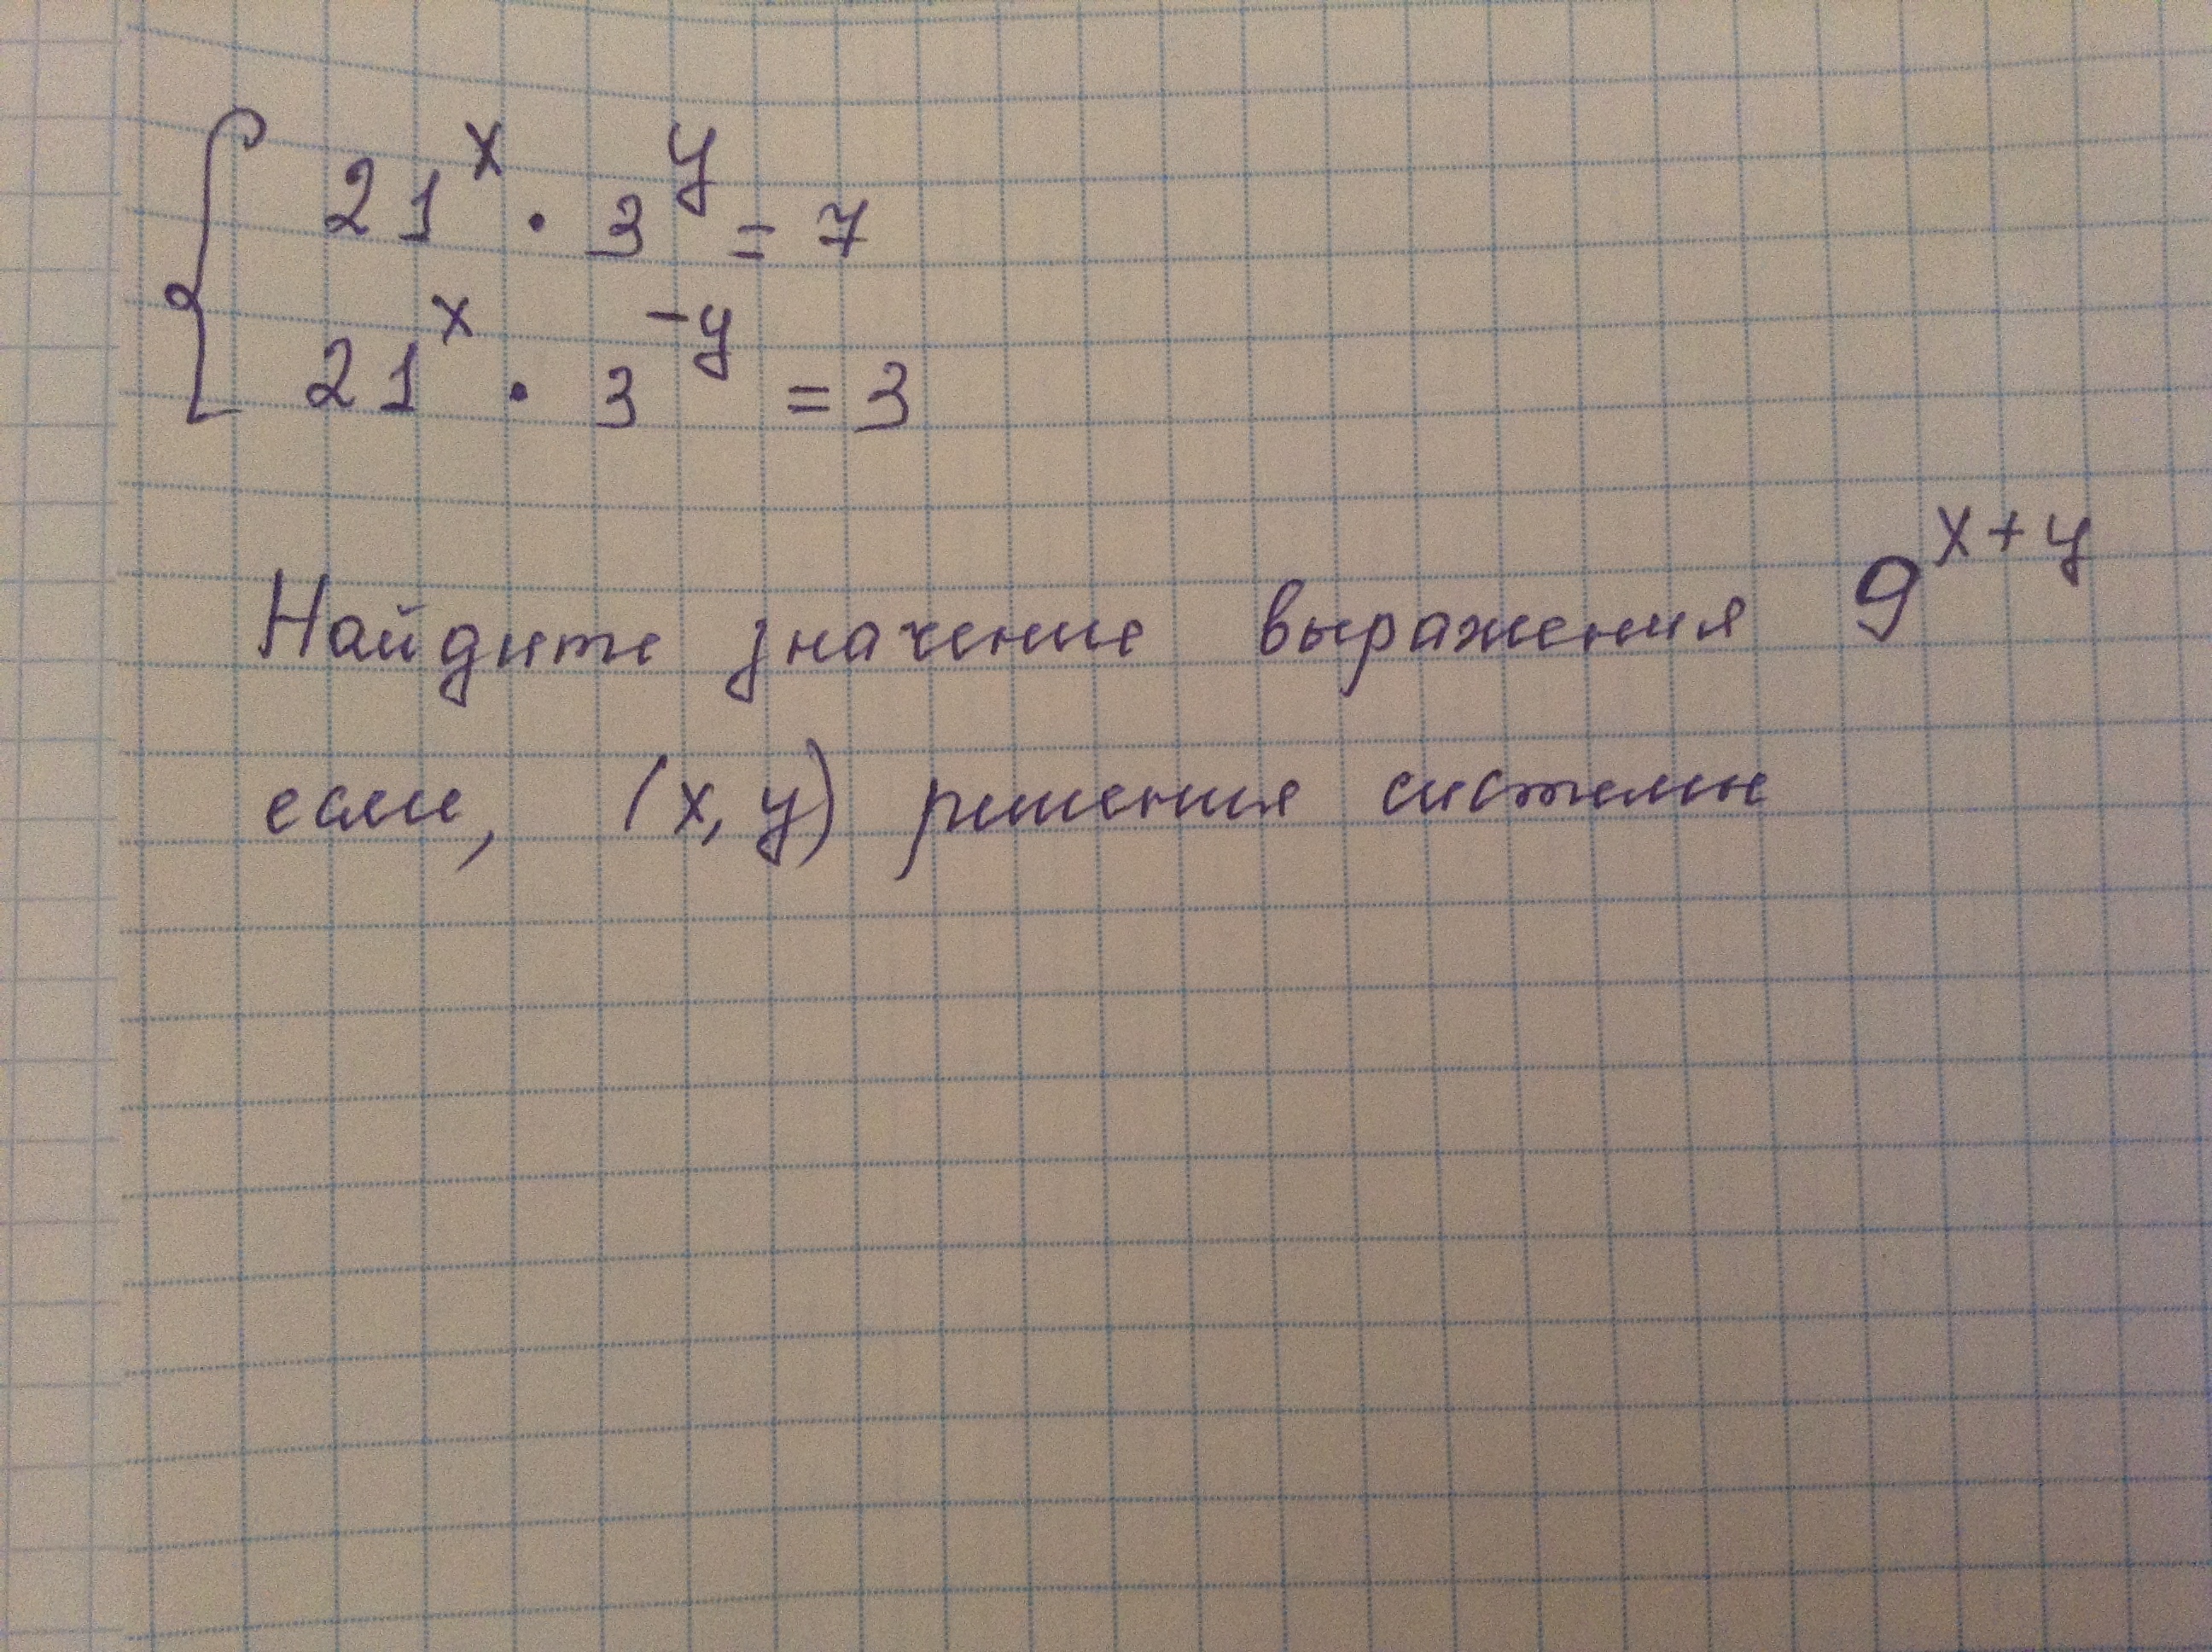 21^x · 3^y = 7
21^x · 3^-y = 3
Найдите значение выражения 9^x+y
если, (x, y) решения системы